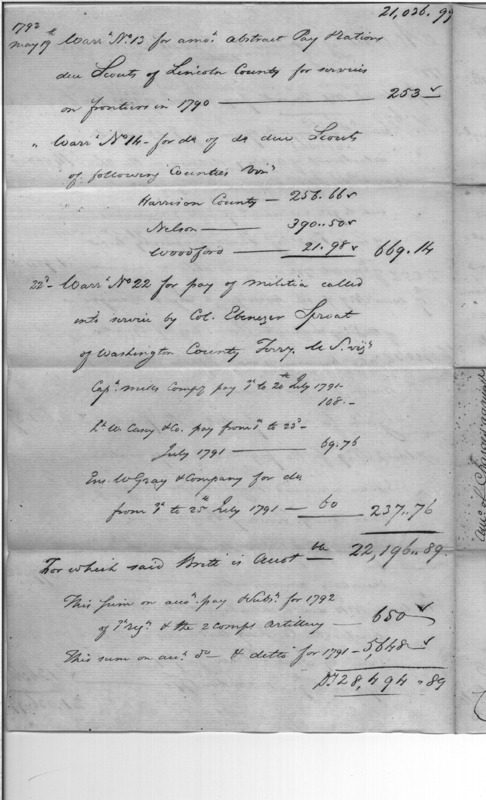 21,036.99
1792
May 19th Warrt No 13 for amot. abstract Pay Rations
due Scouts of Lincoln County for services
on frontiers in 1790 — 253
" Warrt No 14 - for do of do due Scouts
of following Counties Vizt
Harrison County — 256.66
Nelson — 390..50
Woodford — 21.98 669.14
22d - Warrt No 22 for pay of militia called
into service by Col. Ebenezer Sproat
of Washington County Terry. U S. vizt
Capt. Mills Compy pay 1st to 20th July 1791 -
108.-
Lt W. Casey & Co. pay from 1st to 23d -
July 1791 — 69.76
Ens. W Gray & Company for do
from 1st to 25th July 1791 — 60 237..76
For which said Britt is Accot ble 22,196..89
This Sum on acct. pay & Subs. for 1792
of 1st Regt. & the 2 Comps Artillery — 650
This sum on act. do - & ditto for 1791 - 5,648
Ds 28,494..89